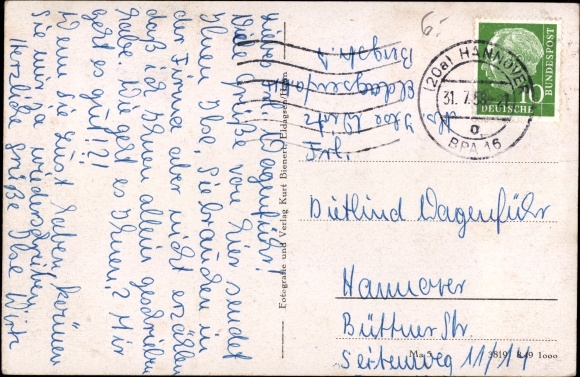 Liebe D. Wagenführ!
Viele Grüße von hier sendet
Ihnen Ilse. Sie brauchen in
der Firma aber nicht erzählen
daß ich Ihnen allein geschrieben
habe. Wie geht es Ihnen? Mir
geht es gut!?!
Wenn Sie Lust haben können
Sie mir ja wiederschreiben.
Herzliche Grüße Ilse Wirtz
Fotografie und Verlag Kurt Bienert, Eldagsen/Hann.
Abs. Ilse Wirtz
Eldagsen/Hann
6.-
(20a) HANNOVER
31. 7.
a
BPA 16
10
DEUTSCHE
BUNDESPOST
Frl.
Dietlind Wagenführ
Hannover
Büttner Str
Seitenweg 11/14
Ma 5 3819 8.49 1000